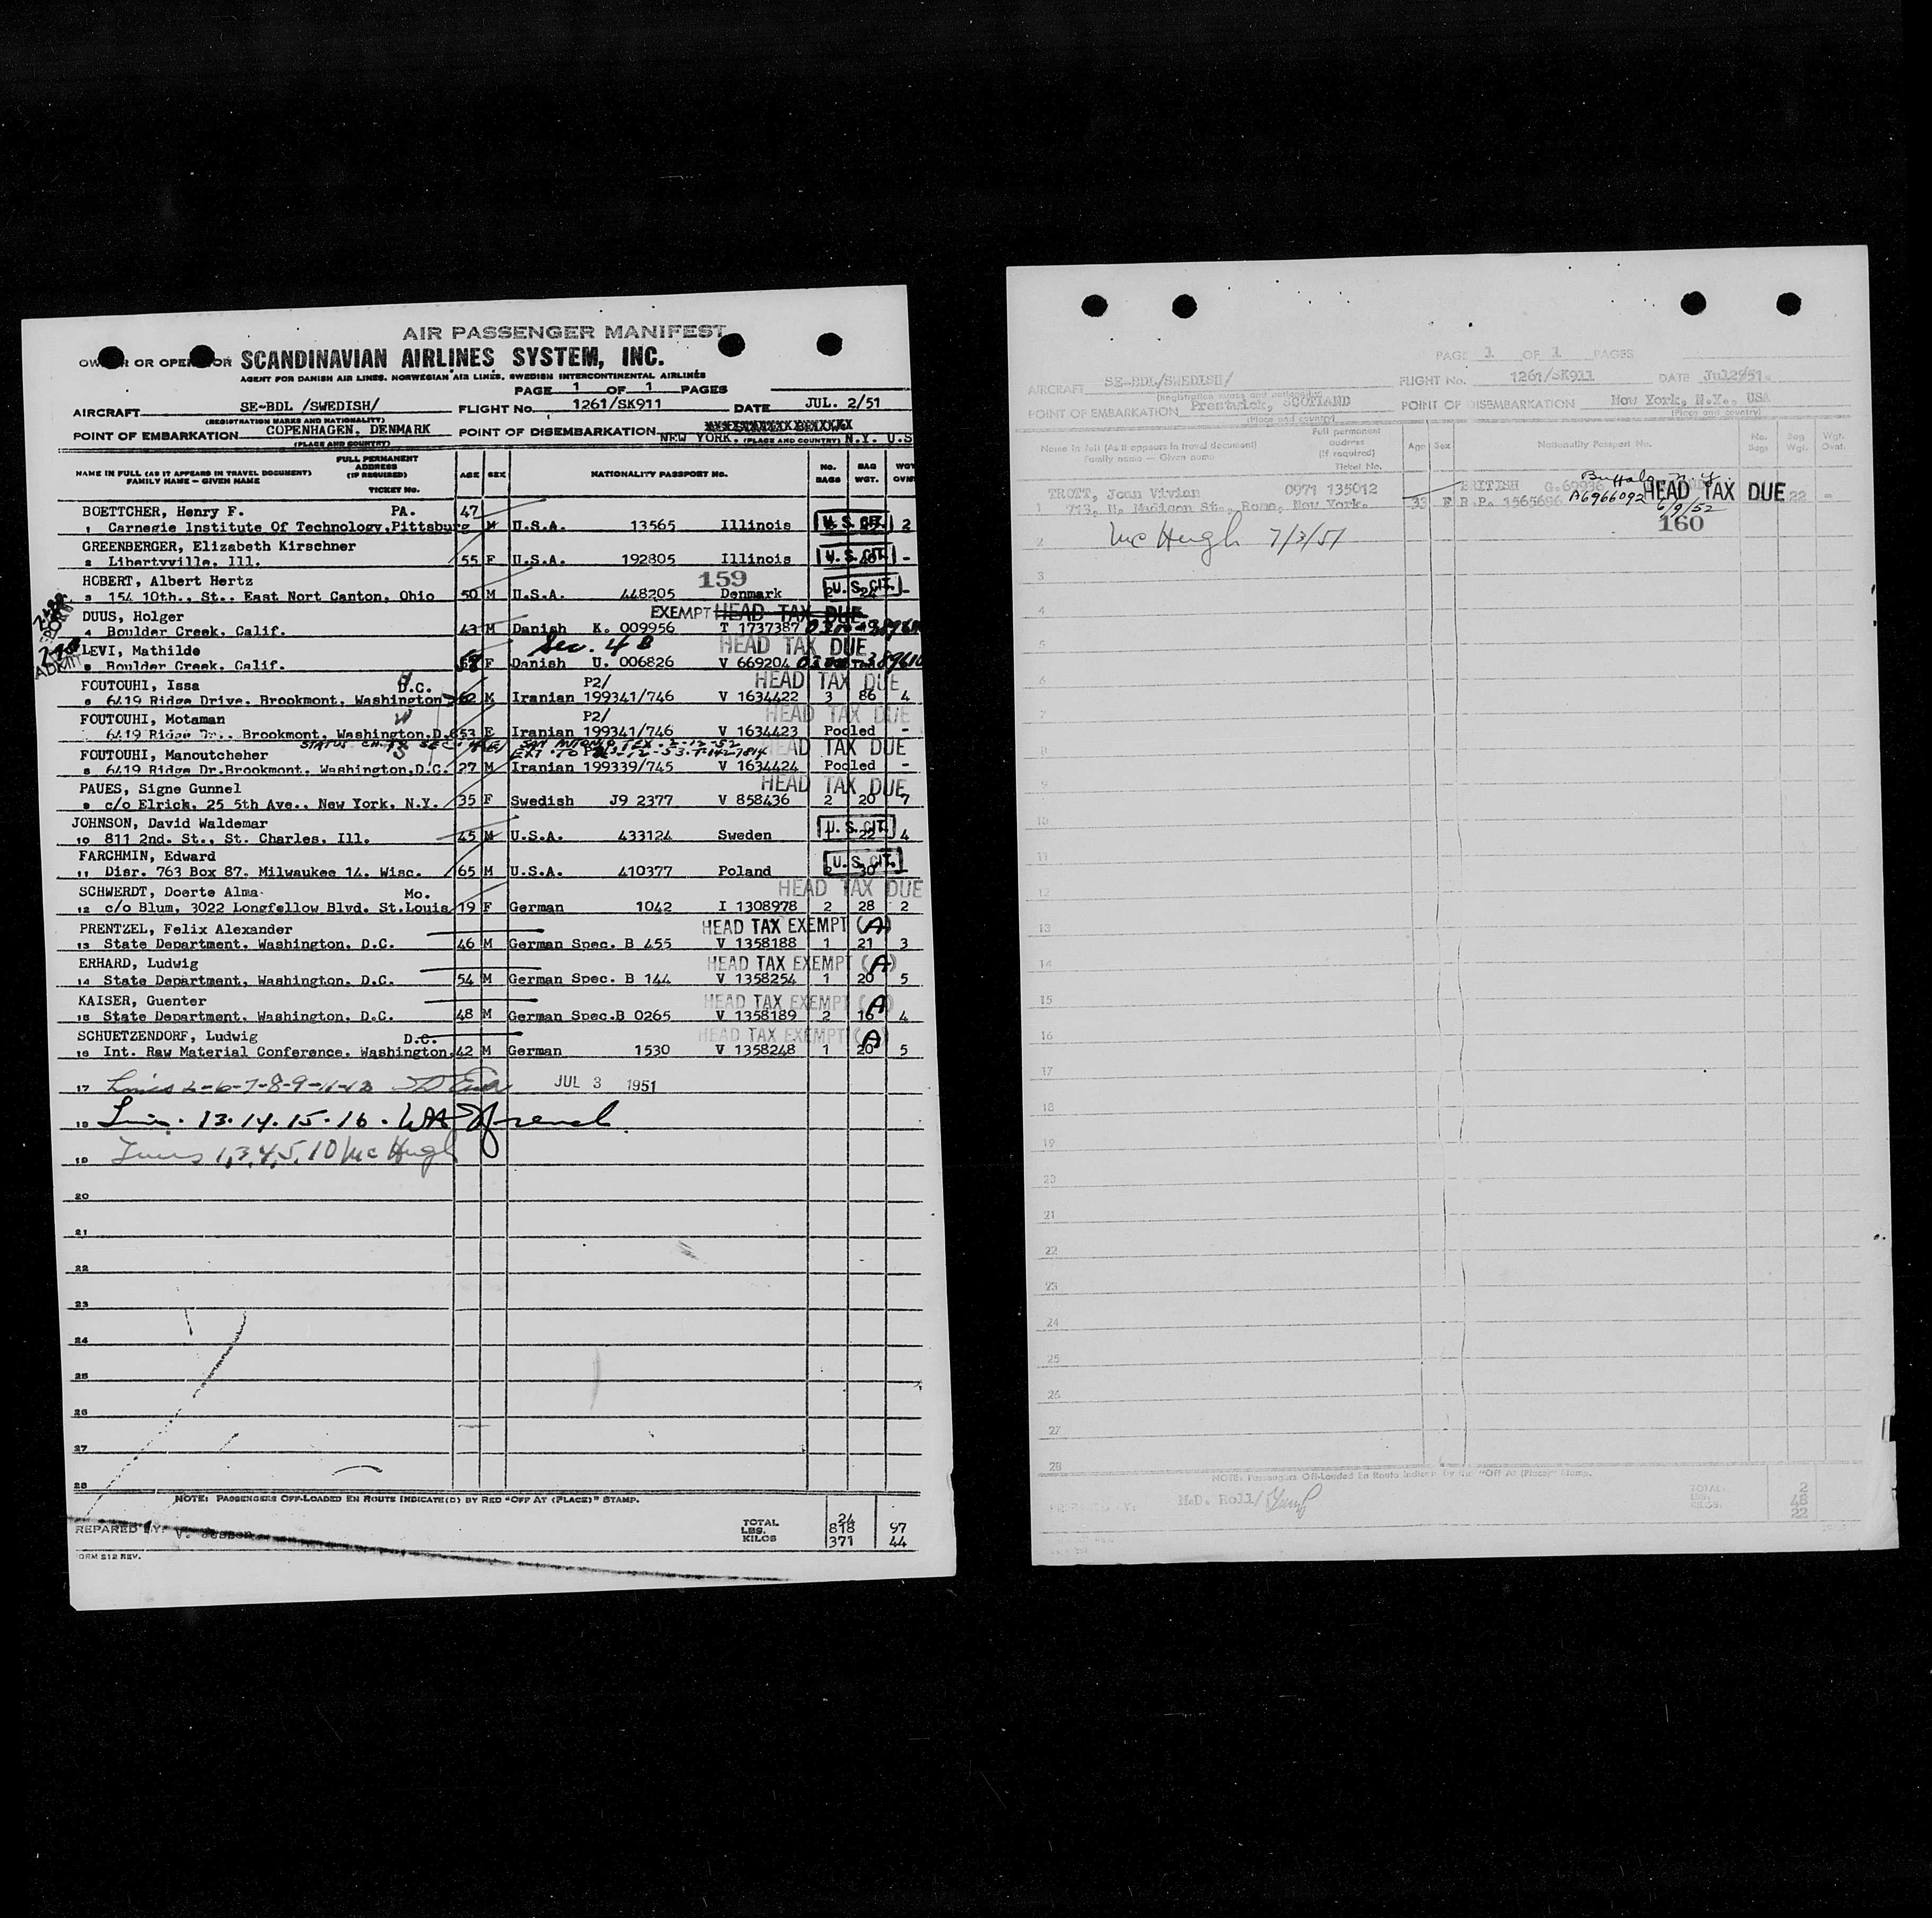 AIR PASSENGER MANIFEST
OWNER OR OPERATOR SCANDINAVIAN AIRLINES SYSTEM, INC.
AGENT FOR DANISH AIR LINES, NORWEGIAN AIR LINES, SWEDISH INTERCONTINENTAL AIRLINES
PAGE 1 OF 1 PAGES
AIRCRAFT SE-BDL /SWEDISH/ FLIGHT No. 1261/SK911 DATE JUL. 2/51
(REGISTRATION MARKS AND NATIONALITY)
POINT OF EMBARKATION COPENHAGEN, DENMARK POINT OF DISEMBARKATION NEW YORK, N.Y. U.S
(PLACE AND COUNTRY) (PLACE AND COUNTRY)
NAME IN FULL (AS IT APPEARS IN TRAVEL DOCUMENT) FAMILY NAME – GIVEN NAME FULL PERMANENT ADDRESS (IF REQUIRED) TICKET No. AGE SEX NATIONALITY PASSPORT NO. NO. BAGS BAG WGT. WGT
BOETTCHER, Henry F. PA. 47
1 Carnegie Institute Of Technology,Pittsburg M U.S.A. 13565 Illinois U.S. CIT. 2
GREENBERGER, Elizabeth Kirschner
2 Libertyville, Ill. 55 F U.S.A. 192805 Illinois U.S. CIT. -
HOBERT, Albert Hertz 159
3 154 10th., St., East Nort Canton, Ohio 50 M U.S.A. 448205 Denmark U.S. CIT. -
DUUS, Holger EXEMPT HEAD TAX DUE
4 Boulder Creek, Calif. 43 M Danish K. 009956 T 1737387
LEVI, Mathilde Sec. 4 B HEAD TAX DUE
5 Boulder Creek, Calif. F Danish U. 006826 V 669204
FOUTOUHI, Issa D.C. P2/ HEAD TAX DUE
6 6419 Ridge Drive, Brookmont, Washington 62 M Iranian 199341/746 V 1634422 3 86 4
FOUTOUHI, Motaman P2/ HEAD TAX DUE
6419 Ridge Dr., Brookmont, Washington.D.C 53 F Iranian 199341/746 V 1634423 Pooled -
STATUS CH. SEC. SAN ANTONIO, TEX. 2-12-52
FOUTOUHI, Manoutcheher HEAD TAX DUE
8 6419 Ridge Dr.Brookmont, Washington,D.C. 27 M Iranian 199339/745 V 1634424 Pooled -
PAUES, Signe Gunnel HEAD TAX DUE
9 c/o Elrick, 25 5th Ave., New York, N.Y. 35 F Swedish J9 2377 V 858436 2 20 7
JOHNSON, David Waldemar
10 811 2nd. St., St. Charles, Ill. 45 M U.S.A. 433124 Sweden U.S. CIT. 22 4
FARCHMIN, Edward
11 Disr. 763 Box 87, Milwaukee 14, Wisc. 65 M U.S.A. 410377 Poland U.S. CIT. 2 30
SCHWERDT, Doerte Alma Mo. HEAD TAX DUE
12 c/o Blum, 3022 Longfellow Blvd. St.Louis 19 F German 1042 I 1308978 2 28 2
PRENTZEL, Felix Alexander HEAD TAX EXEMPT (A)
13 State Department, Washington, D.C. 46 M German Spec. B 455 V 1358188 1 21 3
ERHARD, Ludwig HEAD TAX EXEMPT (A)
14 State Department, Washington, D.C. 54 M German Spec. B 144 V 1358254 1 20 5
KAISER, Guenter HEAD TAX EXEMPT (A)
15 State Department, Washington, D.C. 48 M German Spec.B 0265 V 1358189 2 16 4
SCHUETZENDORF, Ludwig D.C. HEAD TAX EXEMPT (A)
16 Int. Raw Material Conference, Washington, 42 M German 1530 V 1358248 1 20 5
17 Lines 2-6-7-8-9-11-12 JUL 3 1951
18 Lines 13.14.15.16. French
19 Lines 1,3,4,5,10 McHugh
20
21
22
23
24
25
26
27
28
NOTE: PASSENGERS OFF-LOADED EN ROUTE INDICATE(D) BY RED "OFF AT (PLACE)" STAMP.
REPARED BY: V.
TOTAL 24
LBS. 818 97
KILOS 371 44
ORM S12 REV.
PAGE 1 OF 1 PAGES
AIRCRAFT SE-BDL/SWEDISH/ FLIGHT No. 1261/SK911 DATE Jul2/51.
(Registration marks and nationality)
POINT OF EMBARKATION Prestwick, SCOTLAND POINT OF DISEMBARKATION New York, N.Y., USA
(Place and country) (Place and country)
Name in full (As it appears in travel document) Family name — Given name Full permanent address (If required) Ticket No. Age Sex Nationality Passport No. No. Bags Bag Wgt. Wgt. Ovat.
TROTT, Joan Vivian 0971 135012 BRITISH G.69936 Buffalo N.Y.
1 713, N. Madison St., Rome, New York. 33 F R.P. 1565696 A6966092 HEAD TAX DUE 22 -
6/9/52
160
2 McHugh 7/3/51
3
4
5
6
7
8
9
10
11
12
13
14
15
16
17
18
19
20
21
22
23
24
25
26
27
28
NOTE: Passengers Off-Loaded En Route Indicate by the "Off At (Place)" Stamp.
PREPARED BY: M.D. Roll/
TOTAL 2
LBS. 48
KILOS 22